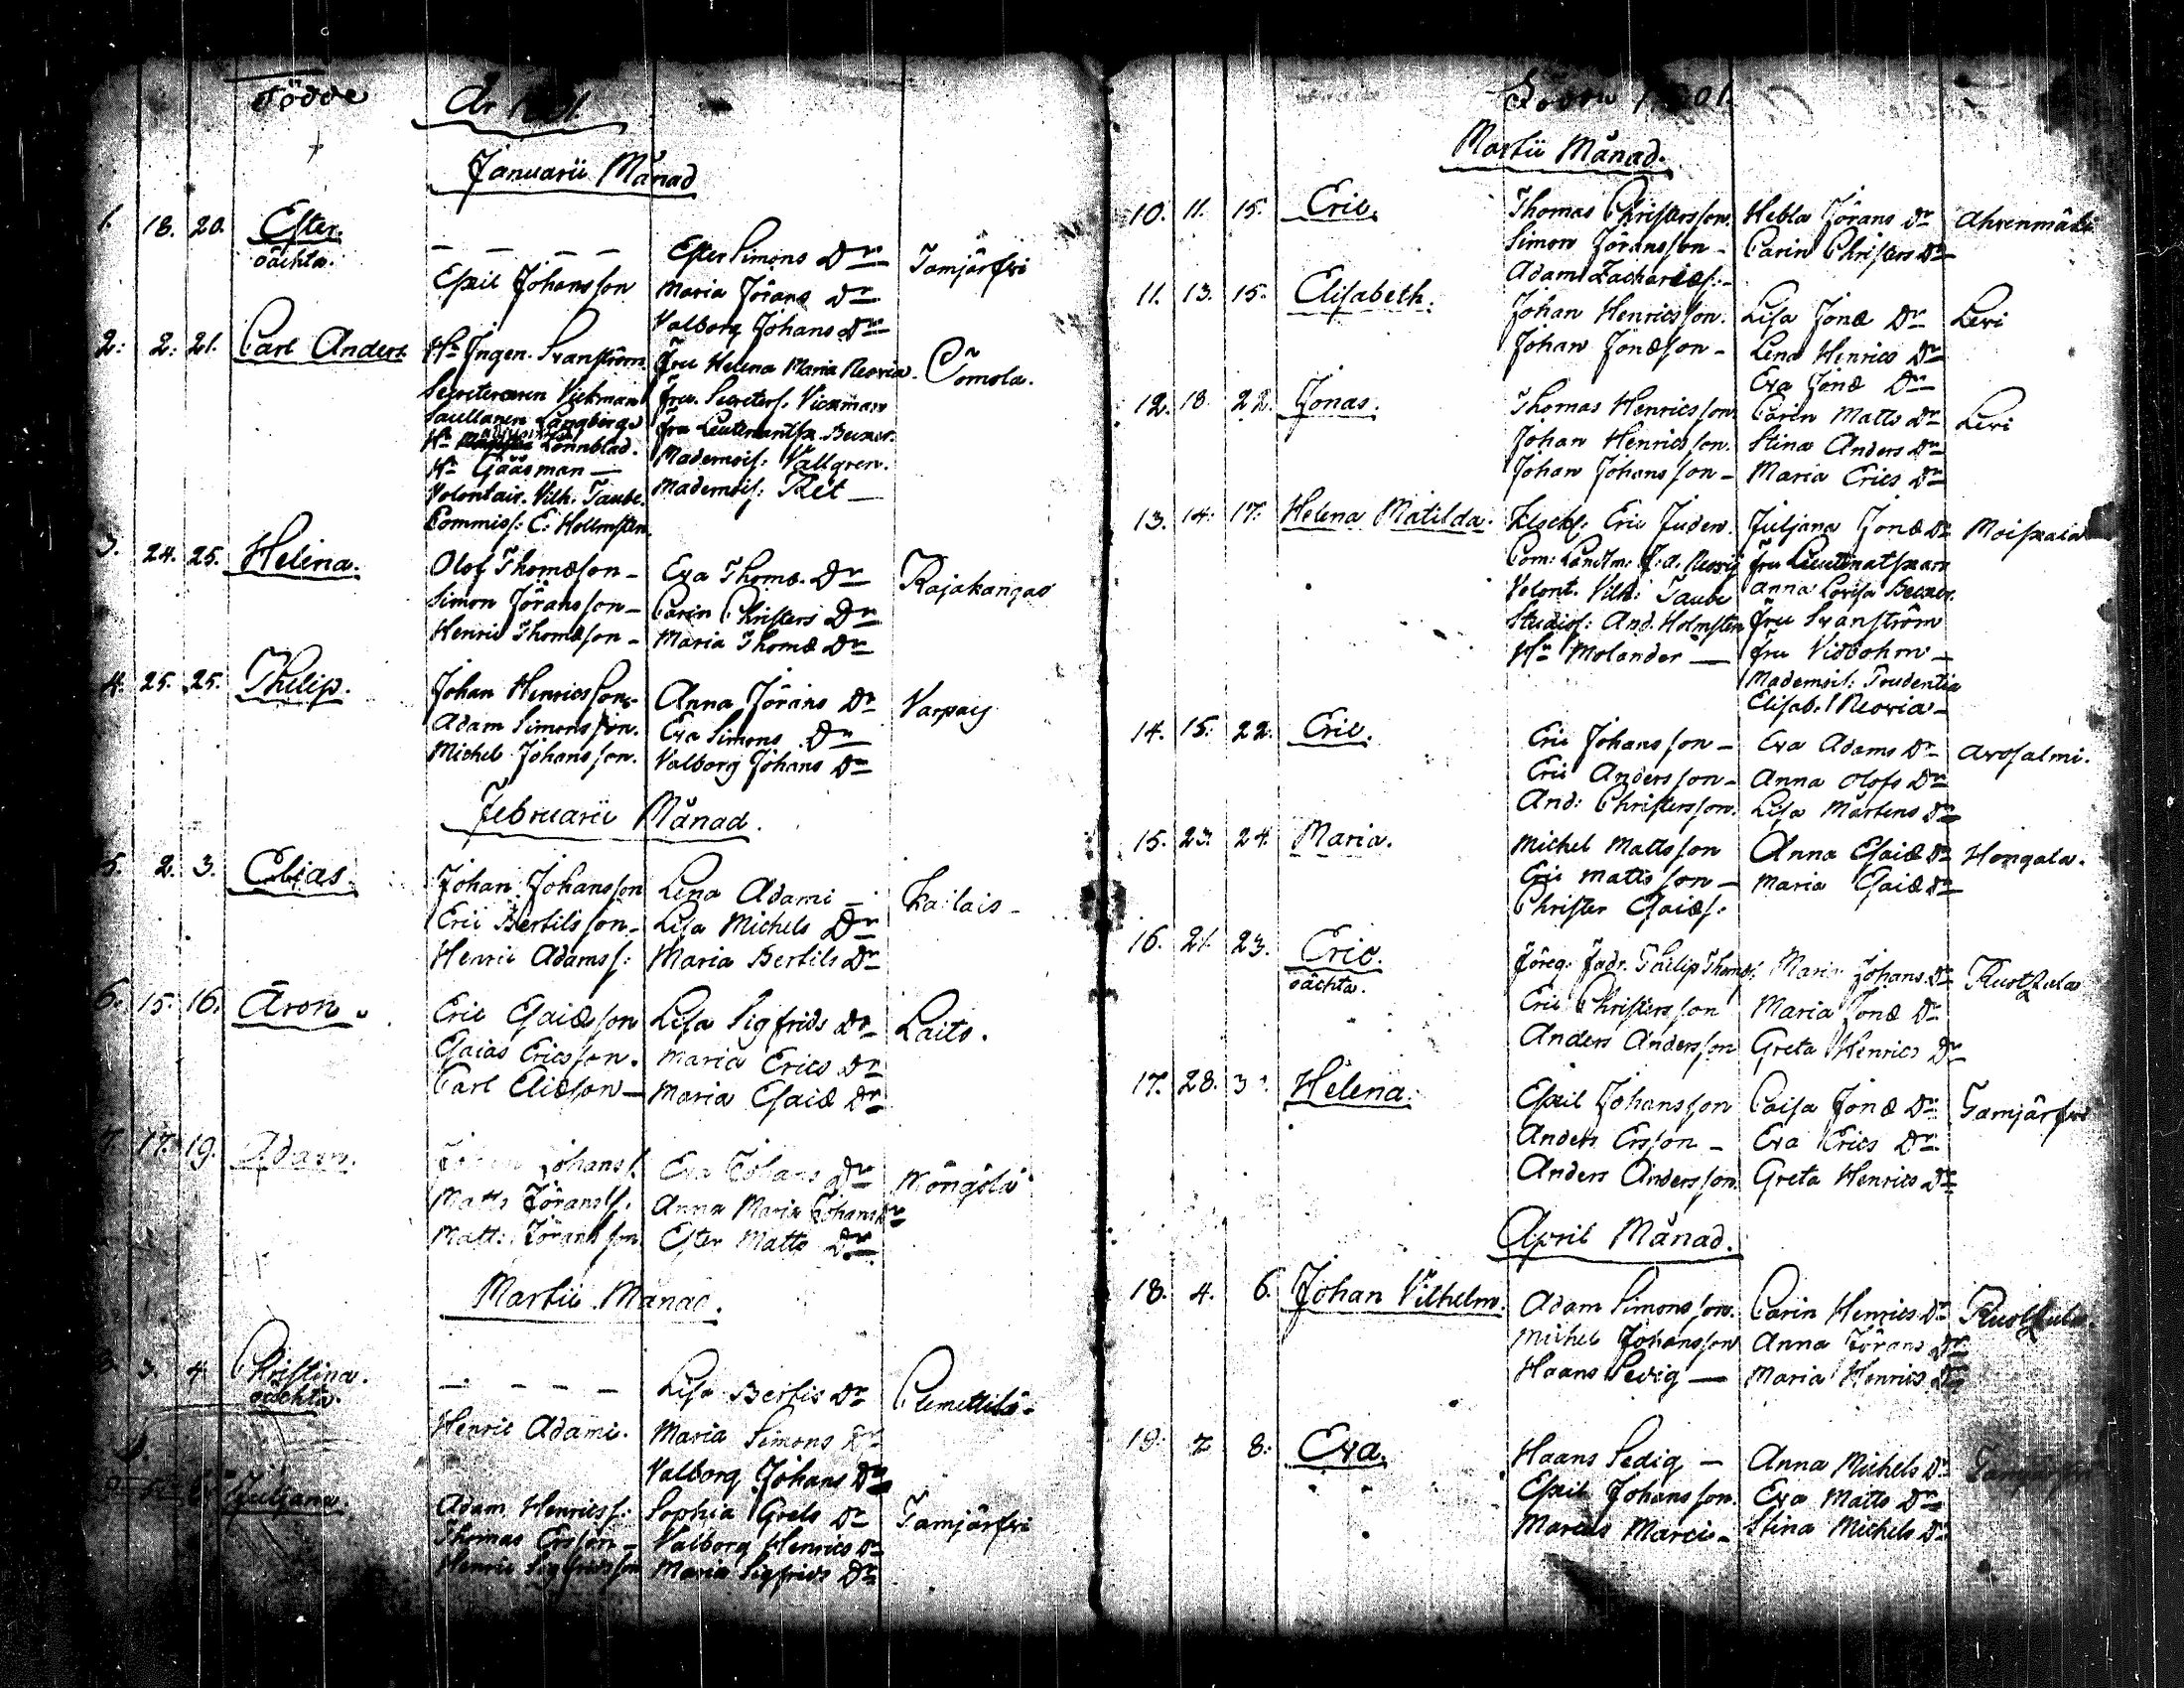 Födde
År
Januarii Månad
1. 18. 20. Ester.
oächta.
— — — — Ester Simons Dr Tamjärfvi
Eskil Johansson Maria Jörans Dr
Valborg Johans Dr
2: 2: 21. Carl Anders Hr Ingen. Svanström Fru Helena Maria Reovia Comola.
Secreteraren Vickman Fru Secreters. Vickman
Langberg Fru Leutenantskan Becker
Hr Lönnblad. Mademois: Vallgren.
Hr Gååsman — Mademois:
Volontair. Vilh: Taube.
Commiss: E: Hollmsten
3. 24. 25. Helena. Olof Thomæson — Eva Thomæ Dr Rajakangas
Simon Jöransson — Carin Christers Dr
Henric Thomæson — Maria Thomæ Dr
4. 25. 25. Philip. Johan Henricsson Anna Jörans Dr Varpay
Adam Simonsson. Eva Simons Dr
Michel Johansson. Valborg Johans Dr
Februarii Månad.
5. 2. 3. Elias. Johan Johansson Lena Adami — Kailais —
Eric Bertilsson — Lisa Michels Dr
Henric Adamss: Maria Bertils Dr
6. 15. 16. Aron. Eric Esaiæson Lisa Sigfrids Dr Laito.
Esaias Ericsson. Maria Erics Dr
Carl Eliæson — Maria Esaiæ Dr
7. 17. 19. Adam. Johan Johanss. Eva Johans Dr Mongola
Matts Jöranss. Anna Maria Johans Dr
Matts Jöransson Ester Matts Dr
Martii Månad.
3. 4. Christina.
oächta.
— — — — Lisa Bertis Dr Clemettilä —
Henric Adami. Maria Simons Dr
Valborg Johans Dr
Juljana. Adam Henricss: Sophia Grels Dr Tamjärfvi
Thomas Ersson — Valborg Henrics Dr
Henric Sigfridsson Maria Sigfrids Dr
Martii Månad.
10. 11. 15. Eric. Thomas Christersson. Hebla Jörans Dr Ahvenmäki
Simon Jöransson — Carin Christers Dr
Adam Zachariæs: —
11. 13. 15. Elisabeth. Johan Henricsson. Lisa Jonæ Dr Levi
Johan Jonæson — Lena Henrics Dr
Eva Jonæ Dr
12. 18. 22. Jonas. Thomas Henricsson Carin Matts Dr Levi
Johan Henricsson. Stina Anders Dr
Johan Johansson — Maria Erics Dr
13. 14. 17. Helena Matilda. Klock: Eric Juden. Juljana Jonæ Dr Moispala
Com: Landtm: Fru Lieutenatskan
Volont. Vilh: Taube Anna Lovisa Becker.
Studios: And. Holmsten Fru Svanström
Hr Molander — Fru Vidbohm —
Mademois: Prudentia
Elisab. Reovia —
14. 15. 22. Eric. Eric Johansson — Eva Adams Dr Arosalmi.
Eric Andersson — Anna Olofs Dr
And: Christersson. Lisa Mårtens Dr
15. 23. 24. Maria. Michel Mattsson Anna Esaiæ Dr Hongala.
Eric Mattsson — Maria Esaiæ Dr
Christer Esaiæs.
16. 21. 23. Eric.
oächta.
Föreg. Fadr. Philip Maria Johans Dr
Eric Christersson Maria Jonæ Dr
Anders Andersson Greta Henrics Dr
17. 28. Helena. Eskil Johansson Caisa Jonæ Dr Tamjärfvi
Anders Ersson — Eva Erics Dr
Anders Andersson Greta Henrics Dr
April Månad.
18. 4. 6. Johan Vilhelm. Adam Simonsson. Carin Henrics Dr
Michel Johansson Anna Jörans Dr
Haans Sedig — Maria Henrics Dr
19. 7. 8. Eva. Haans Sedig — Anna Michels Dr Tamjärfvi
Eskil Johansson. Eva Matts Dr
Marcus Marci — Stina Michels Dr